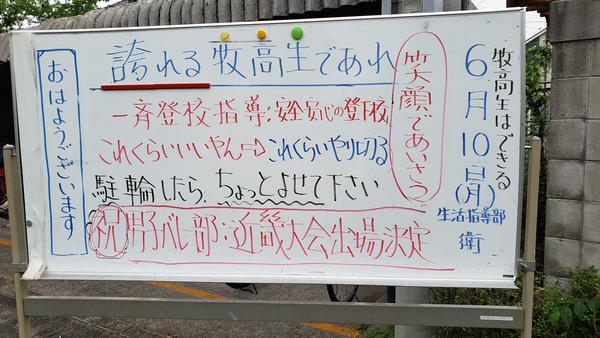 牧高生はできる
6月10日(月)
生活指導部
衛
笑顔であいさつ
誇れる牧高生であれ
一斉登校指導:安全安心の登下校
これくらいいいやん⇨これくらいやり切る
駐輪したら、ちょっとよせて下さい
祝 男子バレー部:近畿大会出場決定
おはようございます